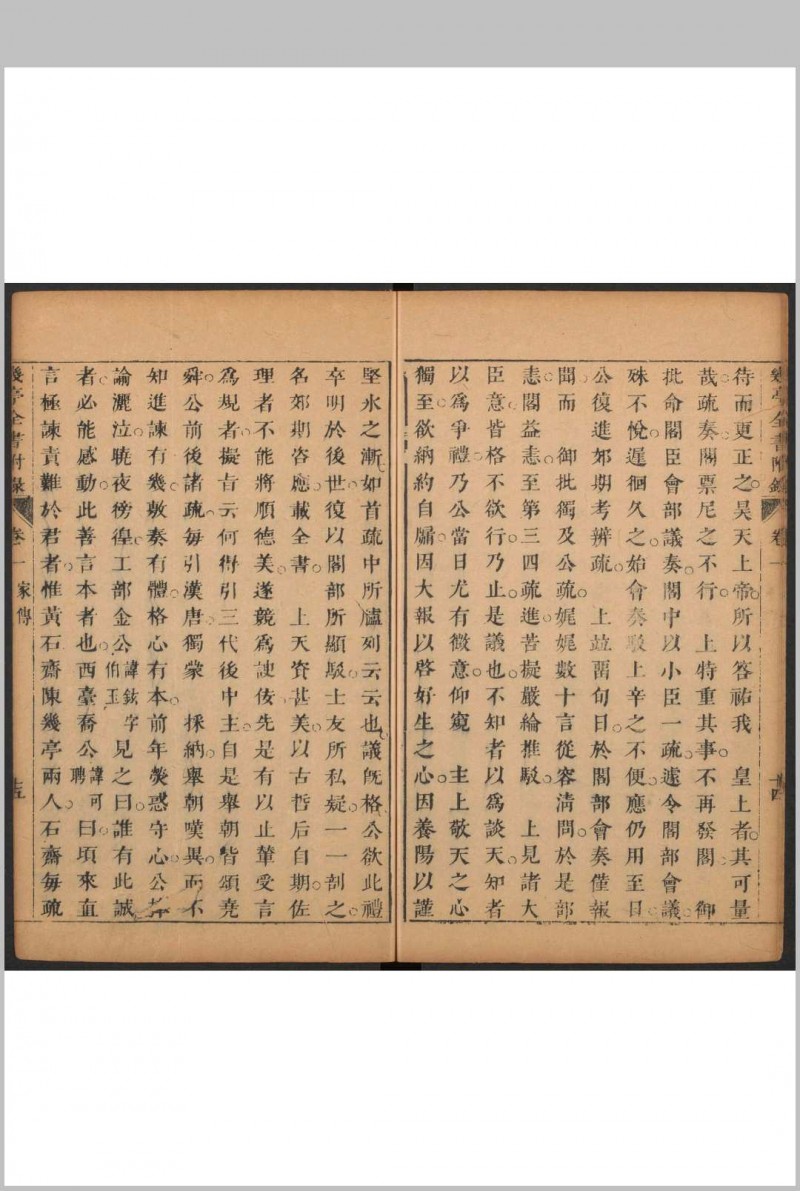 待而更正之昊天上帝所以答祐我　皇上者其可量
哉疏奏閣票尼之不行　上特重其事不再發閣　御
批命閣臣會部議奏閣中以小臣一疏遽令閣部會議
殊不悅遲徊久之始會奏駁上辛之不便應仍用至日
公復進郊期考辨疏　上竝留旬日於閣部會奏僅報
聞而　御批獨及公疏娓娓數十言從容清問於是部
恚閣益恚至第三四疏進苦擬嚴綸推駁　上見諸大
臣意皆格不欲行乃止是議也不知者以為談天知者
以為爭禮乃公當日尤有微意仰窺　主上敬天之心
獨至欲納約自牖因大報以啓好生之心因養陽以謹
幾亭全書附錄　卷一　十四
堅氷之漸如首疏中所臚列云云也議旣格公欲此禮
卒明於後世復以閣部所顯駁士友所私疑一一剖之
名郊期咨應載全書　上天資甚美以古哲后自期佐
理者不能將順德美遂競為諛佞先是有以止輦受言
為規者擬旨云何得引三代後中主自是舉朝皆頌堯
舜公前後諸疏每引漢唐獨蒙　採納舉朝嘆異而不
知進諫有幾敷奏有體格心有本前年熒惑守心公
諭灑泣曉夜徬徨工部金公諱鉉字伯玉見之曰誰有此誠
者必能感動此善言本者也西臺喬公諱可聘曰頃來直
言極諫責難於君者惟黃石齋陳幾亭兩人石齋每疏
幾亭全書附錄　卷一　家傳　十五